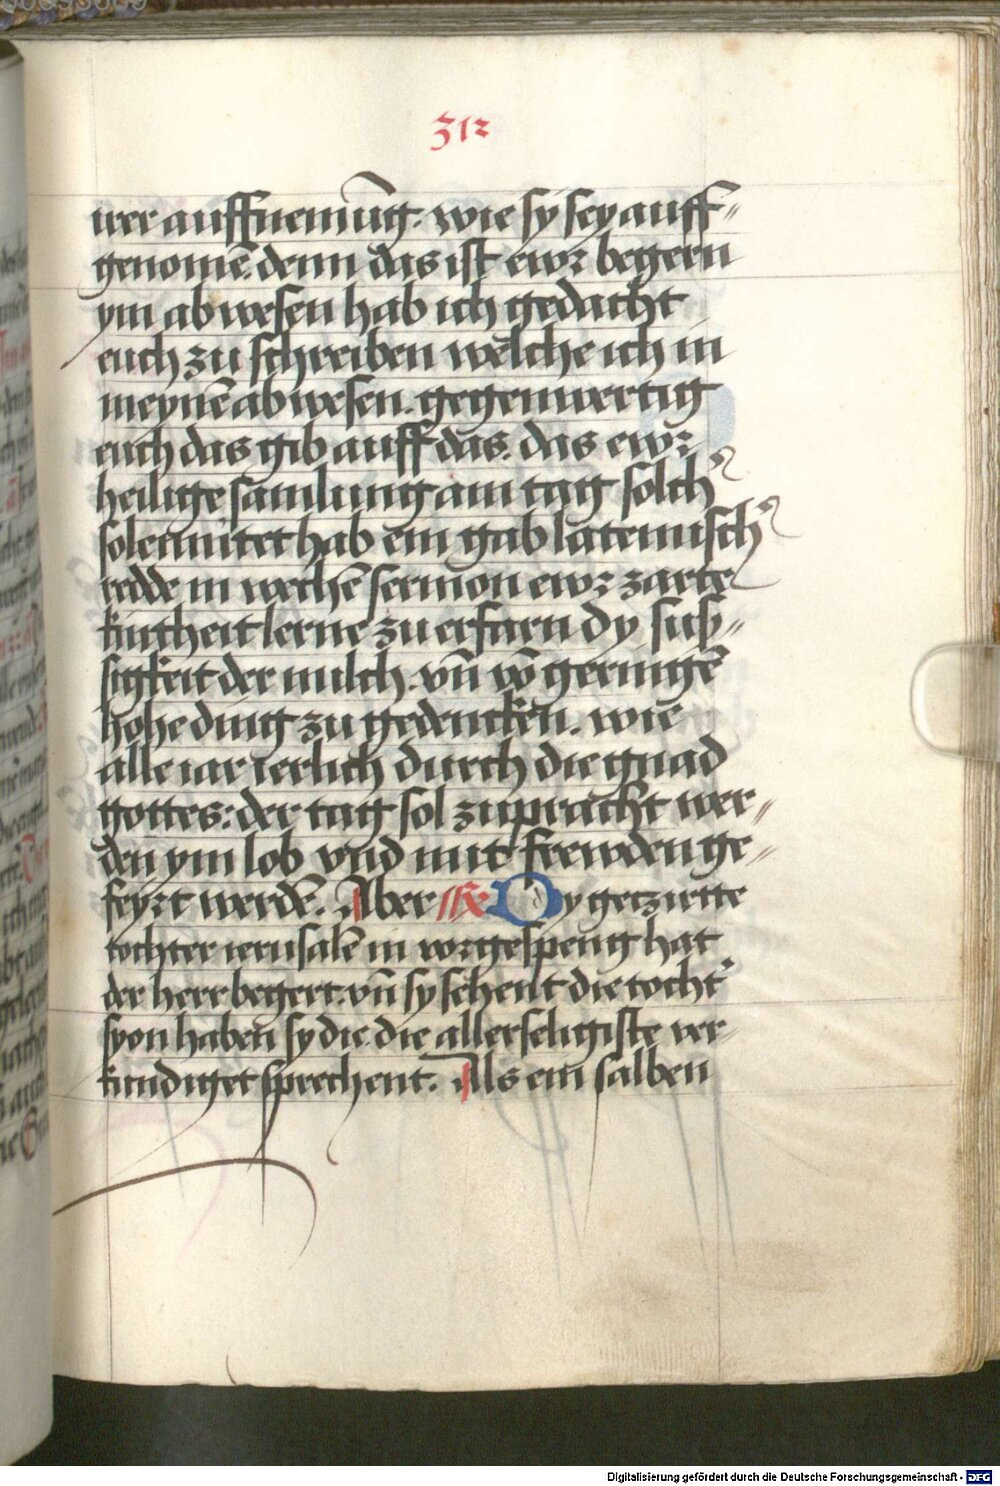 312
irer auffnemūg. wie sy sey auff-
genomē. denn das ist ewr begern
ym abwesen hab ich gedacht
euch zu schreiben welche ich in
meynē abwesen. gegenwertig
euch das gib auff das. das ewr
heilige samlung am tag solch
solennitet hab ein gab lateinisch
redde in welchē sermon ewr zarte
kintheit lerne zu erfarn dy süß-
sigkeit der milch. vn̄ vō geringē
hohe ding zu gedencken. wie
alle iar ierlich durch die gnad
gottes: der tag sol zupracht wer-
den ym lob vnd mit frewden ge-
feyrt werdē. Aber Dy getzirtte
tochter ierusalē in vorgespeng hat
der herr begert. vn̄ sy sehent die tocht
syon haben sy die. die allerseligiste ver-
kundiget sprechent. Als ein salben
Digitalisierung gefördert durch die Deutsche Forschungsgemeinschaft - DFG